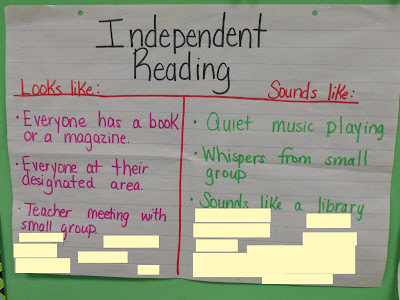 Independent
Reading
Looks like:
· Everyone has a book
or a magazine.
· Everyone at their
designated area.
· Teacher meeting with
small group.
Sounds like:
· Quiet music playing
· Whispers from small
group
· Sounds like a library